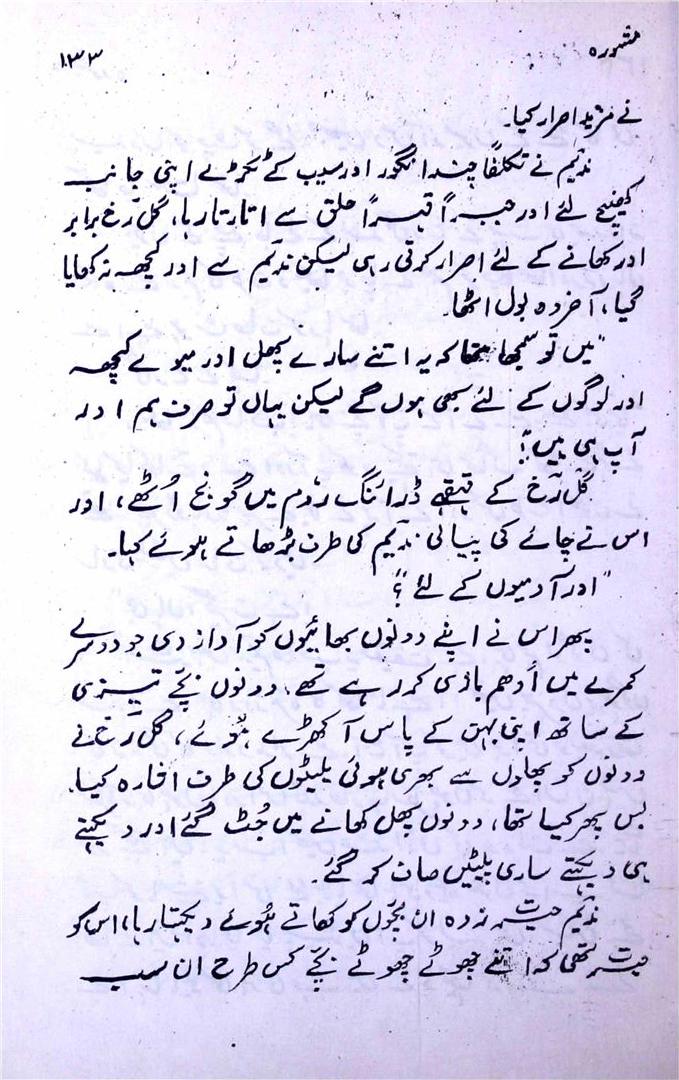 مشورہ ۱۳۳
نے مزید اصرار کیا۔
ندیم نے تکلفاً چند انگور اور سیب کے ٹکڑے اپنی جانب
کھینچ لئے اور جبراً قہراً حلق سے اتارتا رہا، گل رخ برابر
اور کھانے کے لئے اصرار کرتی رہی لیکن ندیم سے اور کچھ نہ کھایا
گیا، آخر وہ بول اٹھا۔
"میں تو سمجھا تھا کہ یہ اتنے سارے پھل اور میوے کچھ
اور لوگوں کے لئے بھی ہوں گے لیکن یہاں تو صرف ہم اور
آپ ہی ہیں"!
گل رخ کے قہقہے ڈرائنگ روم میں گونج اُٹھے، اور
اس نے چائے کی پیالی ندیم کی طرف بڑھاتے ہوئے کہا۔
"اور آدمیوں کے لئے"؟
پھر اس نے اپنے دونوں بھائیوں کو آواز دی جو دوسرے
کمرے میں اُدھم بازی کر رہے تھے، دونوں بچے تیزی
کے ساتھ اپنی بہن کے پاس آ کھڑے ہوئے، گل رخ نے
دونوں کو پھلوں سے بھری ہوئی پلیٹوں کی طرف اشارہ کیا۔
بس پھر کیا تھا، دونوں پھل کھانے میں جٹ گئے اور دیکھتے
ہی دیکھتے ساری پلیٹیں صاف کر گئے۔
ندیم حیرت زدہ ان بچوں کو کھاتے ہُوئے دیکھتا رہا، اس کو
حیرت تھی کہ اتنے چھوٹے چھوٹے بچے کس طرح ان سب